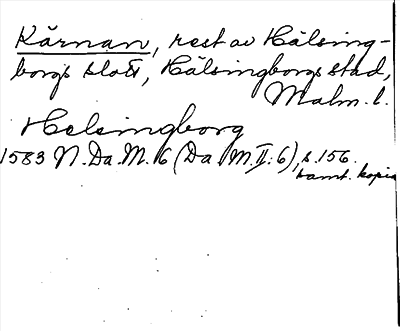 Kärnan, rest av Hälsing-
borgs slott, Hälsingborgs stad,
Malm. l.
Helsingborg
1583 N. Da. M. 6 (Da M. II: 6), s. 156.
samt. kopia